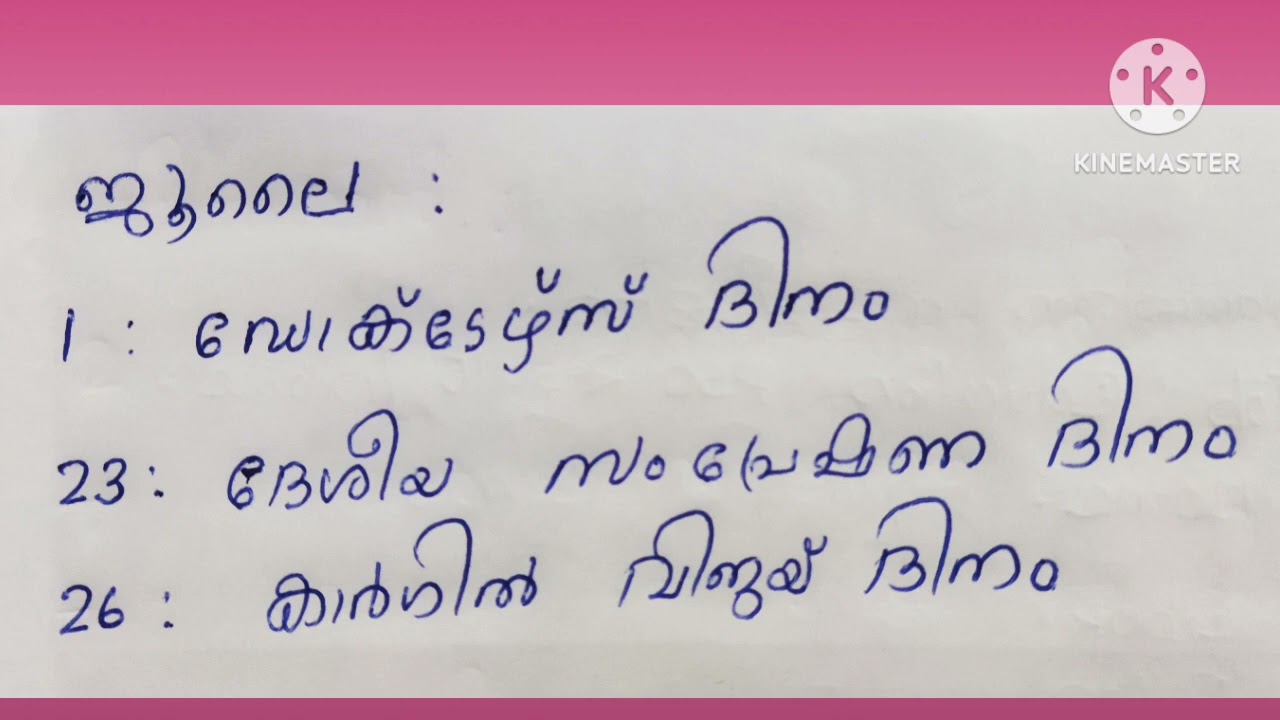 KINEMASTER
ജൂലൈ :
1 : ഡോക്ടേഴ്സ് ദിനം
23 : ദേശീയ സംപ്രേഷണ ദിനം
26 : കാർഗിൽ വിജയ് ദിനം